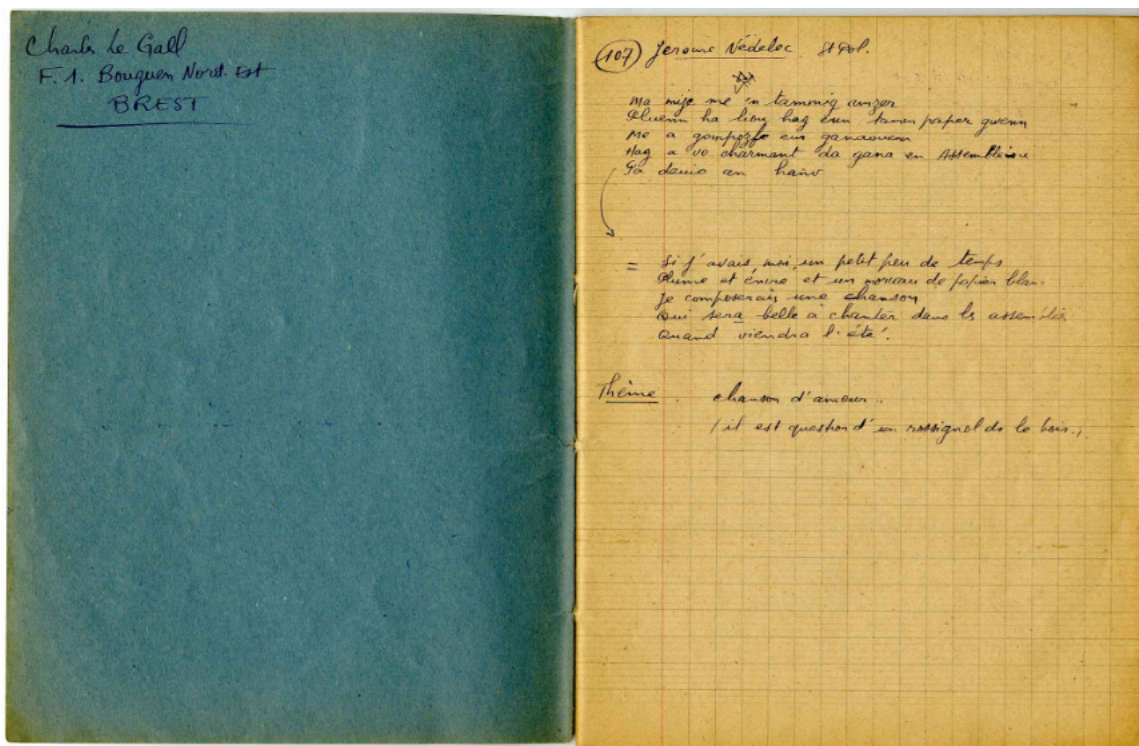 Charles Le Gall
F. 1. Bouguen Nord-Est
BREST
(107) Jerome Nédelec St Pol.
Ma mije me en tammig amzer
Pluenn ha liou hag eun tamm paper gwenn
Me a gompozfe eur ganaouenn
Hag a vo charmant da gana en Assembleiou
Pa deuio an hañv
= Si j'avais, moi, un petit peu de temps
Plume et encre et un morceau de papier blanc
Je composerais une chanson
Qui sera belle à chanter dans les assemblées
Quand viendra l'été.
Thème . chanson d'amour..
(il est question d'un rossignol ds le bois..)